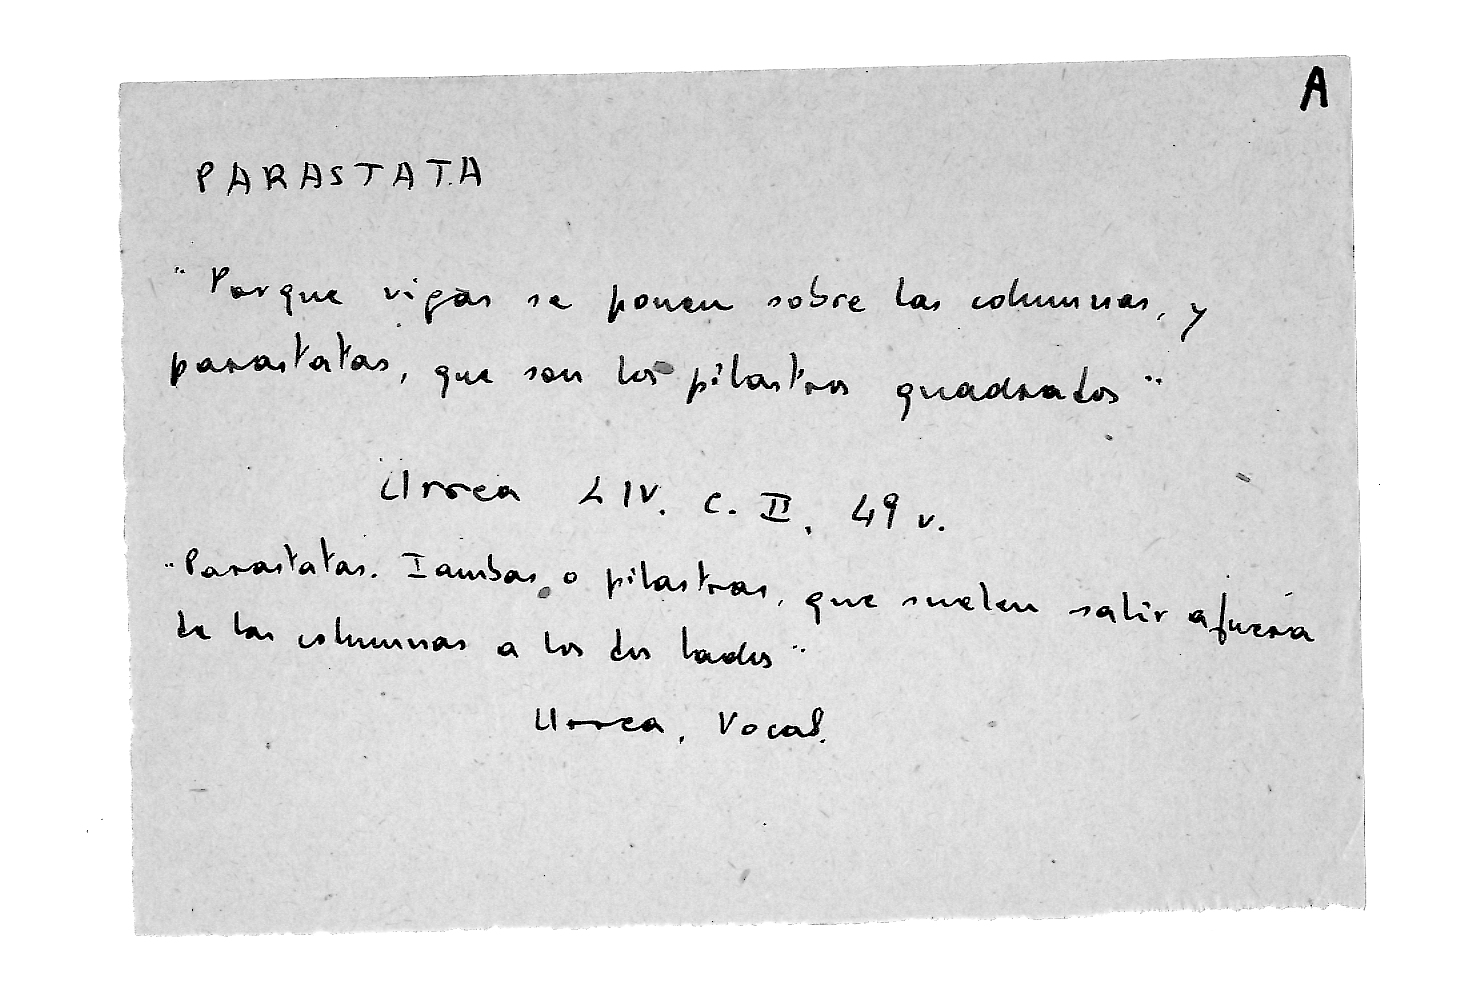 A
PARASTATA
"Porque vigas se ponen sobre las columnas, y
parastatas, que son los pilastros quadrados"
Urrea L IV. c. II, 49 v.
"Parastatas. Iambas, o pilastras, que suelen salir afuera
de las columnas a los dos lados"
Urrea, Vocab.